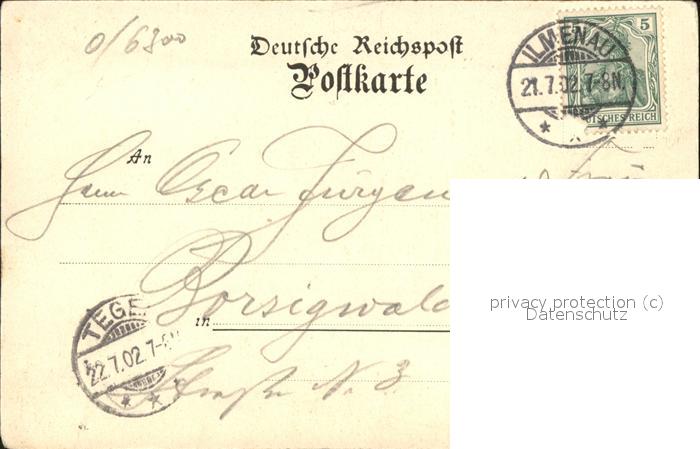 0/6300
Deutsche Reichspost
Postkarte
5
DEUTSCHES REICH
ILMENAU
21.7.02.7-8N.
An
Herrn Oscar Jürgen
in Borsigwald
TEGE
22.7.02.7-8
Straße N. 3
privacy protection (c)
Datenschutz